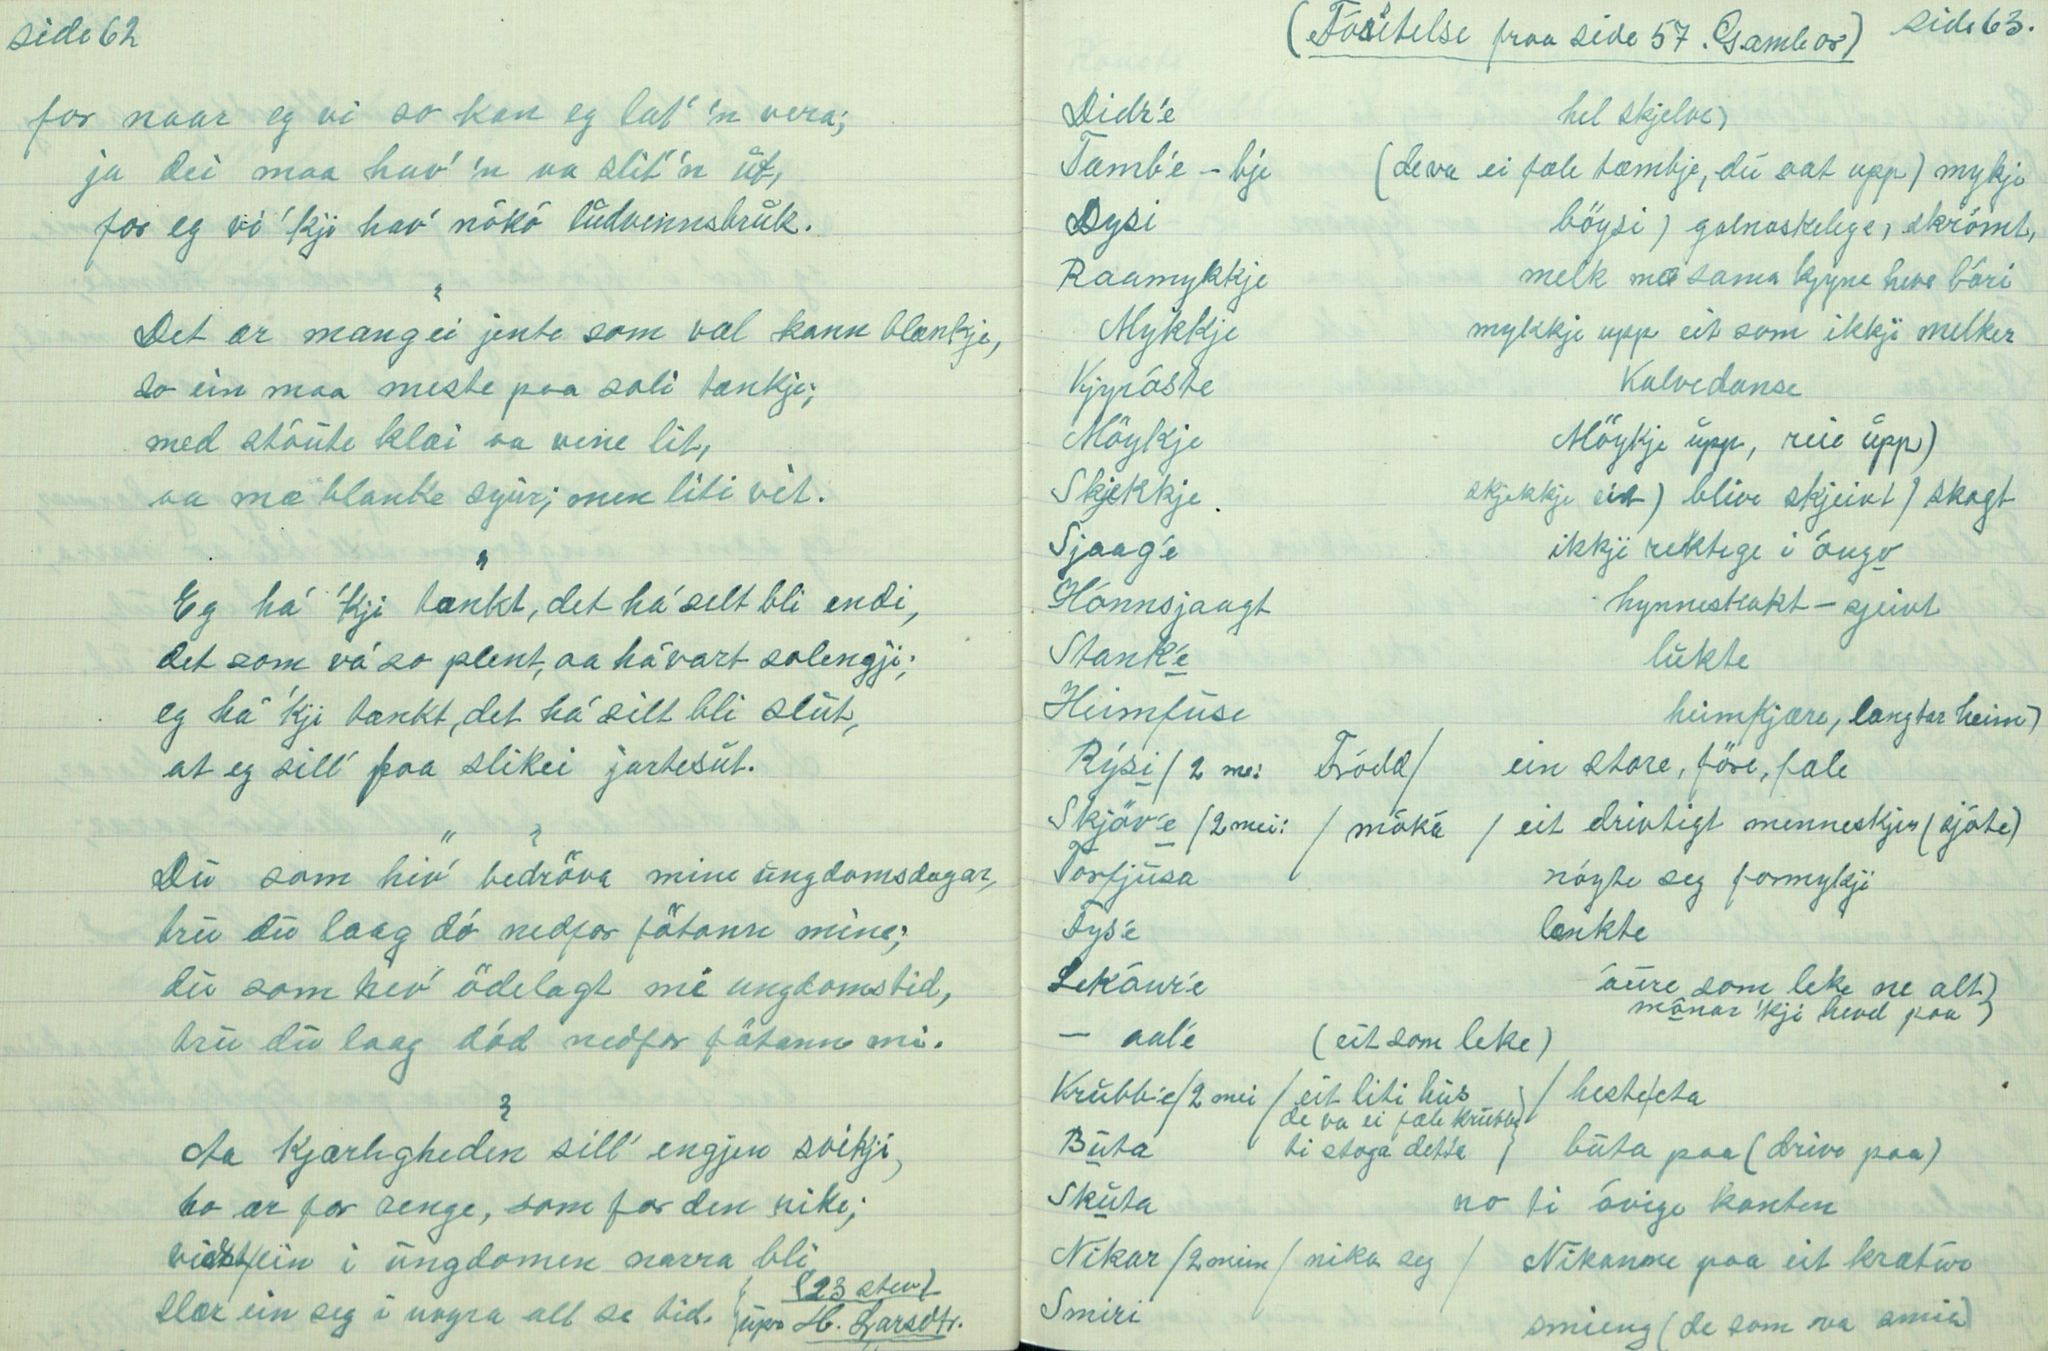 side 62
for naar eg vi so kan eg lat' 'n vera;
ja dei maa hav' 'n va slit' 'n ŭt,
for eg vi 'kji hav' nókó lŭdvennsbrŭk.
Det ær mangei jente som væl kann blænkje,
so ein maa meste paa soli tænkje;
med stóŭte klæi oa vene lit,
oa mæ blanke syŭr; men liti vit.
Eg há 'kji tænkt, det há selt bli endi,
det som vá so plent, aa há vart solengji;
eg há 'kji tænkt, det há silt bli slŭt,
at eg sill' faa slikei jartesŭt.
Dŭ som hev' bedröva mine ŭngdomsdagar,
trŭ dŭ laag dó nedfor fötann mine;
dŭ som hev' ödelagt mi ungdomstid,
trŭ dŭ laag död nedfor fötann mi.
Aa kjærligheden sill' engjen svikji,
ho ær for ænge, som for den rike;
ein i ŭngdomen narra bli
slær ein seg i uogra all se tid.
(23 stev)
ŭpv H. Larsdtr.
(Fósitelse fraa side 57. Gamle or) side 63.
Didr'e hel skjelve)
Tæmb'e - bje (de va ei fæle tæmbje, dŭ sat upp) mykje
Dysi böysi) galnaskelege, skrómt,
Raamykkje melk mæ sama kyyne heve bóri
Mykkje mykkje upp eit som ikkji melker
Kjyróste Kalvedanse
Möykje Möykje ŭpp, reie ŭpp)
Skjekkje skjekkje eit) blive skjeivt / skagt
Sjaag'e ikkji rektege i óugo
Hónnsjaagt hynnestakt - sjeivt
Stank'e lŭkte
Heimfŭse heimkjære, langtar heim)
Rýsi / 2 mei Tródd / ein store, före, fæle
Skjöv'e / 2 mei: / móká / eit drivtigt menneskje (sjóte)
Forfjŭsa nöyte seg formykji
Fys'e lænkte
Lekóur'e óŭre som leke ne alt)
mónar 'kji hevd paa )
— aal'e (eit som leke)
Krŭbb'e / 2 mei / eit liti hŭs / hestefeta
de va ei fæle krŭbbe
Bŭta ti stoga detta / bŭta paa (drive paa)
Skŭta no ti óvige kanten
Nikar / 2 mein / nika seg / Nikanne paa eit krætŭr
Smiri smieng (de som va smia)